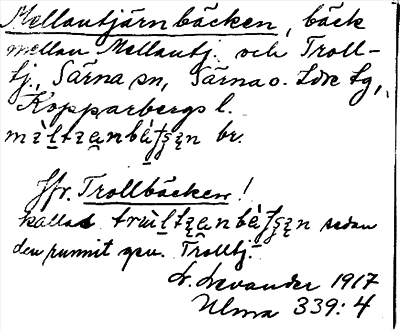 Mellantjärnbäcken, bäck
mellan Mellantj. och Troll-
tj., Särna sn, Särna o. Idre tg,
Kopparbergs l.
br.
Jfr. Trollbäcken!
kallas sedan
den runnit gm. Trolltj.
L. Levander 1917
Ulma 339:4